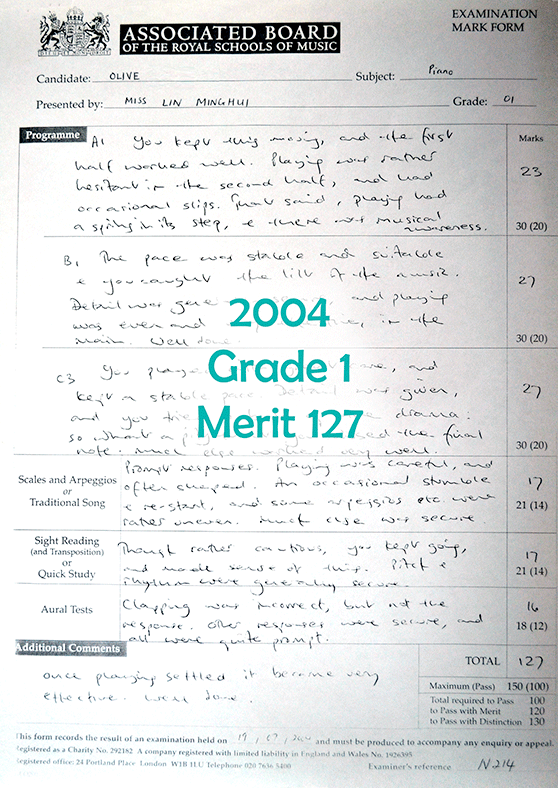 EXAMINATION
MARK FORM
ASSOCIATED BOARD
OF THE ROYAL SCHOOLS OF MUSIC
Candidate: OLIVE Subject: Piano
Presented by: MISS LIN MINGHUI Grade: 01
Programme Marks
A1 You kept this moving, and the first
half worked well. Playing was rather
hesitant in the second half, and had
occasional slips. That said, playing had
a spring in its step, & there was musical
awareness.
23
30 (20)
B1 The pace was stable and suitable
& you caught the lilt of the music.
Detail was and playing
was even and in the
main. Well done.
27
30 (20)
2004
Grade 1
Merit 127
C3 You and
kept a stable pace. Detail was given,
and you drama:
so what a the final
note. Much else worked very well.
27
30 (20)
Scales and Arpeggios
or
Traditional Song
Prompt responses. Playing was careful, and
often shaped. An occasional stumble
& re-start, and some arpeggios etc. were
rather uneven. Much else was secure.
17
21 (14)
Sight Reading
(and Transposition)
or
Quick Study
Though rather cautious, you kept going,
and made sense of this. Pitch &
rhythm were generally secure.
17
21 (14)
Aural Tests
Clapping was incorrect, but not the
response. Other responses were secure, and
all were quite prompt.
16
18 (12)
Additional Comments
Once playing settled it became very
effective. Well done.
TOTAL 127
Maximum (Pass) 150 (100)
Total required to Pass 100
to Pass with Merit 120
to Pass with Distinction 130
This form records the result of an examination held on 19 / 07 / and must be produced to accompany any enquiry or appeal.
Registered as a Charity No. 292182 A company registered with limited liability in England and Wales No. 1926395
Registered office: 24 Portland Place London W1B 1LU Telephone 020 7636 5400
Examiner's reference N214